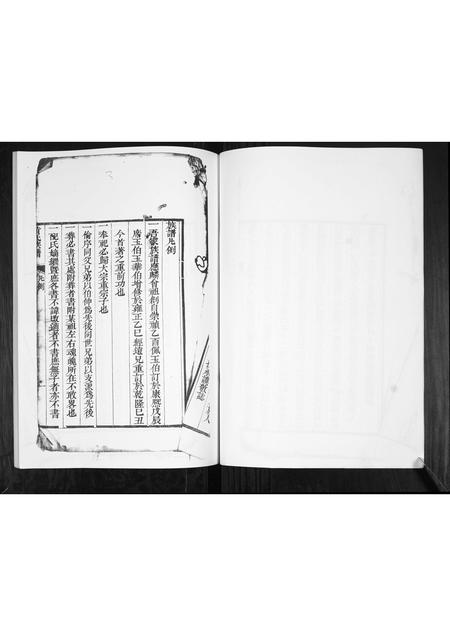 族譜凡例
一吾家族譜應麟曾祖創自崇禎乙酉佩玉伯訂於康熙戊辰
廣玉伯玉華伯增修於雍正乙巳經遠兄重訂於乾隆己丑
今首著之重前功也
一奉祀必歸大宗重宗子也
一倫序同父兄弟以伯仲爲先後同世兄弟以支派爲先後
一葬必書其處附葬者書附某祖左右魂魄所在不敢畧也
一配氏嫡繼暨庶各書不諱改適者不書庶無子者亦不書